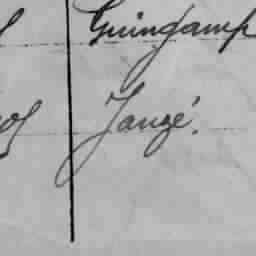 Guingamp
Janzé.